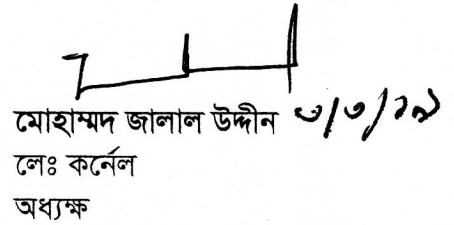 মোহাম্মদ জালাল উদ্দীন ৩/৩/১৯
লেঃ কর্নেল
অধ্যক্ষ